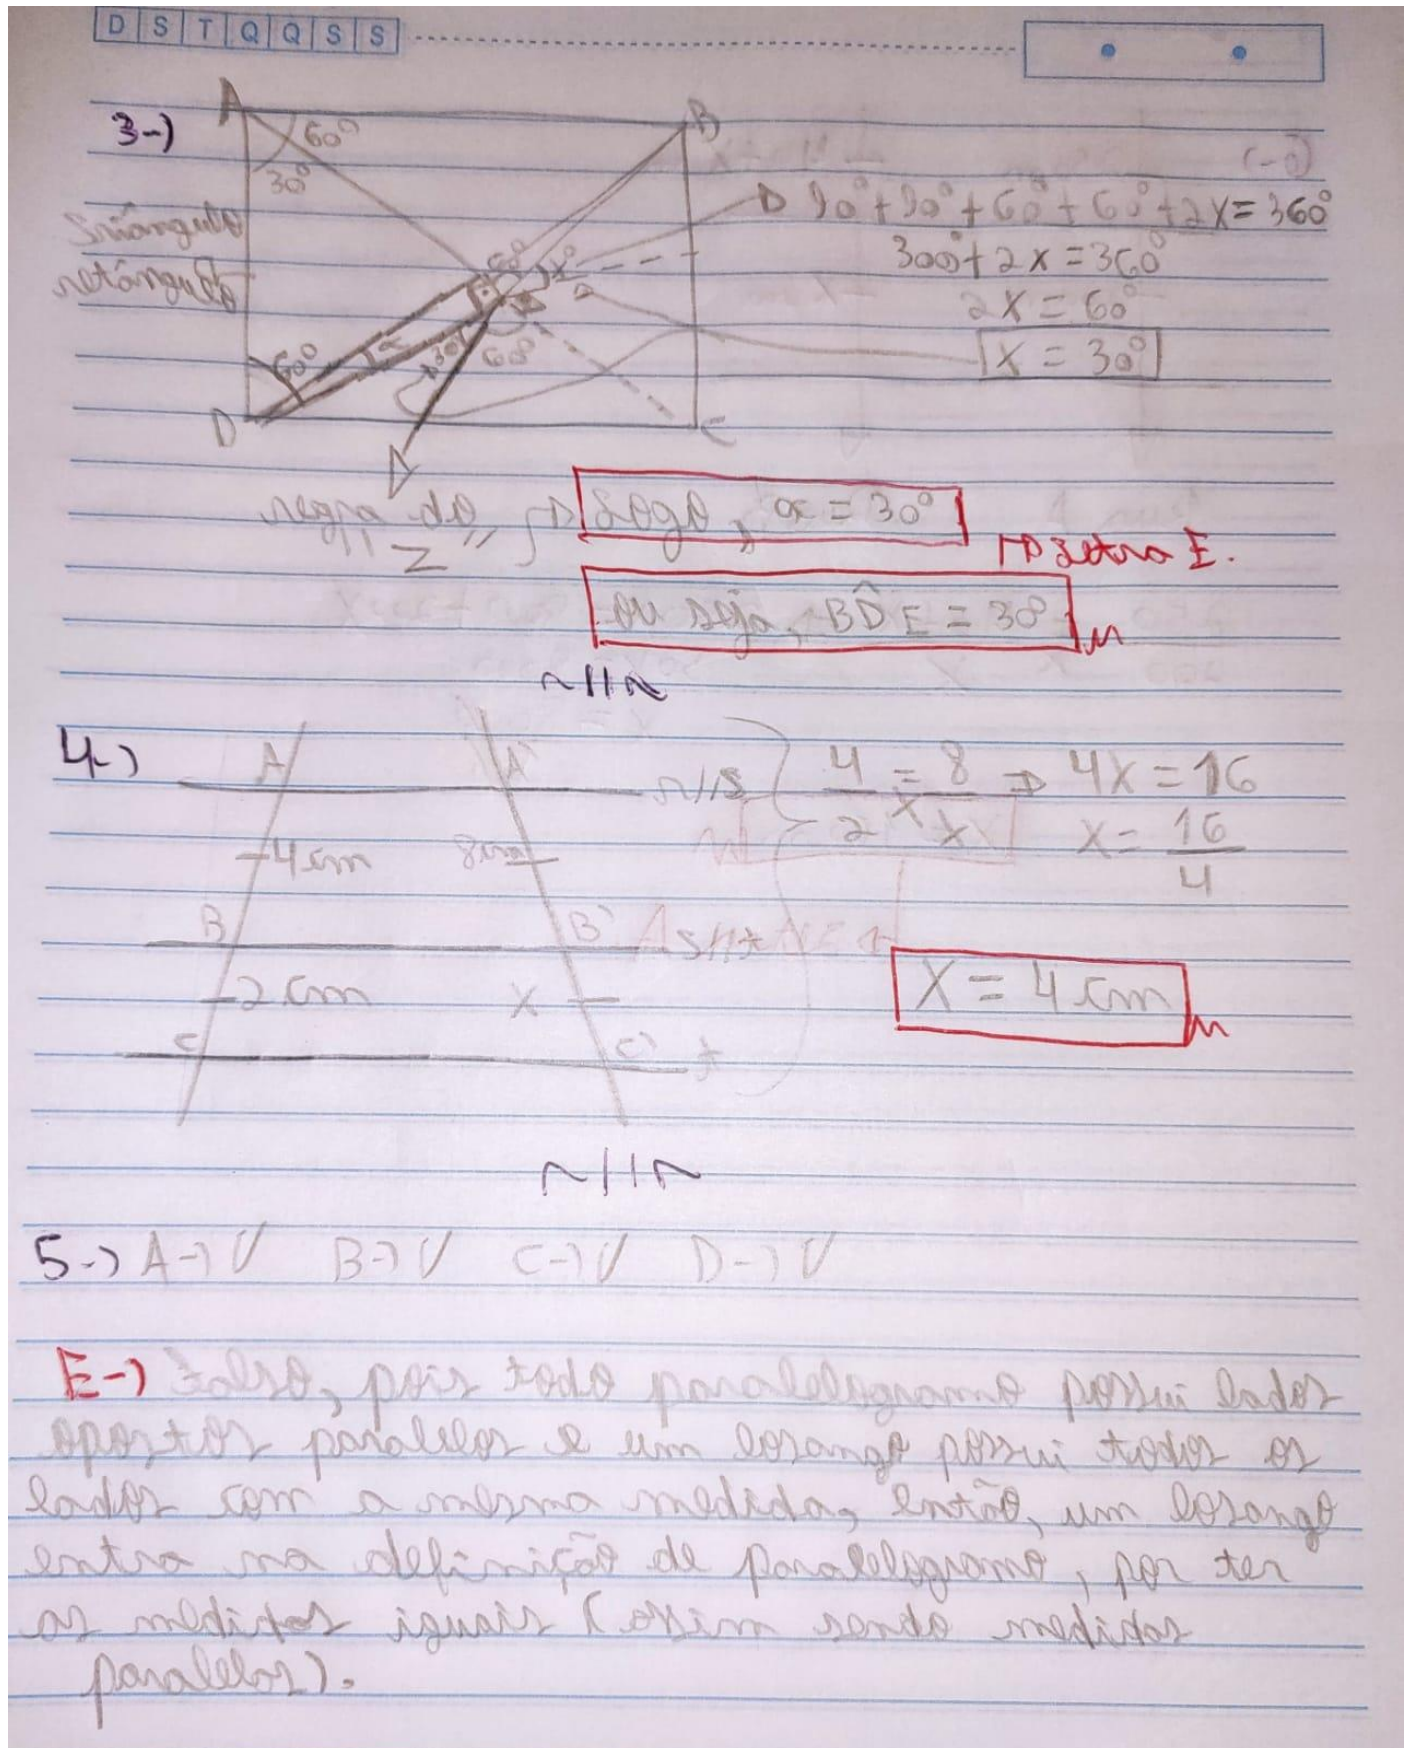 D S T Q Q S S
3-)
A
B
60°
30°
triângulo
retângulo
90° + 90° + 60° + 60° + 2x = 360°
300° + 2x = 360°
2x = 60°
x = 30°
60°
x°
60°
α
30°
60°
D
C
regra do
"Z"
Logo, α = 30°
Letra E.
ou seja, BD̂E = 30°
~//~
4-)
A
A'
r//s
4/2 = 8/x ⇒ 4x = 16
x = 16/4
4cm
8cm
B
B'
s//t
2cm
x
X = 4cm
C
C'
t
~//~
5-) A→V B→V C→V D→V
E-) Falso, pois todo paralelogramo possui lados
opostos paralelos e um losango possui todos os
lados com a mesma medida, então, um losango
entra na definição de paralelogramo, por ter
as medidas iguais (assim sendo medidas
paralelas).